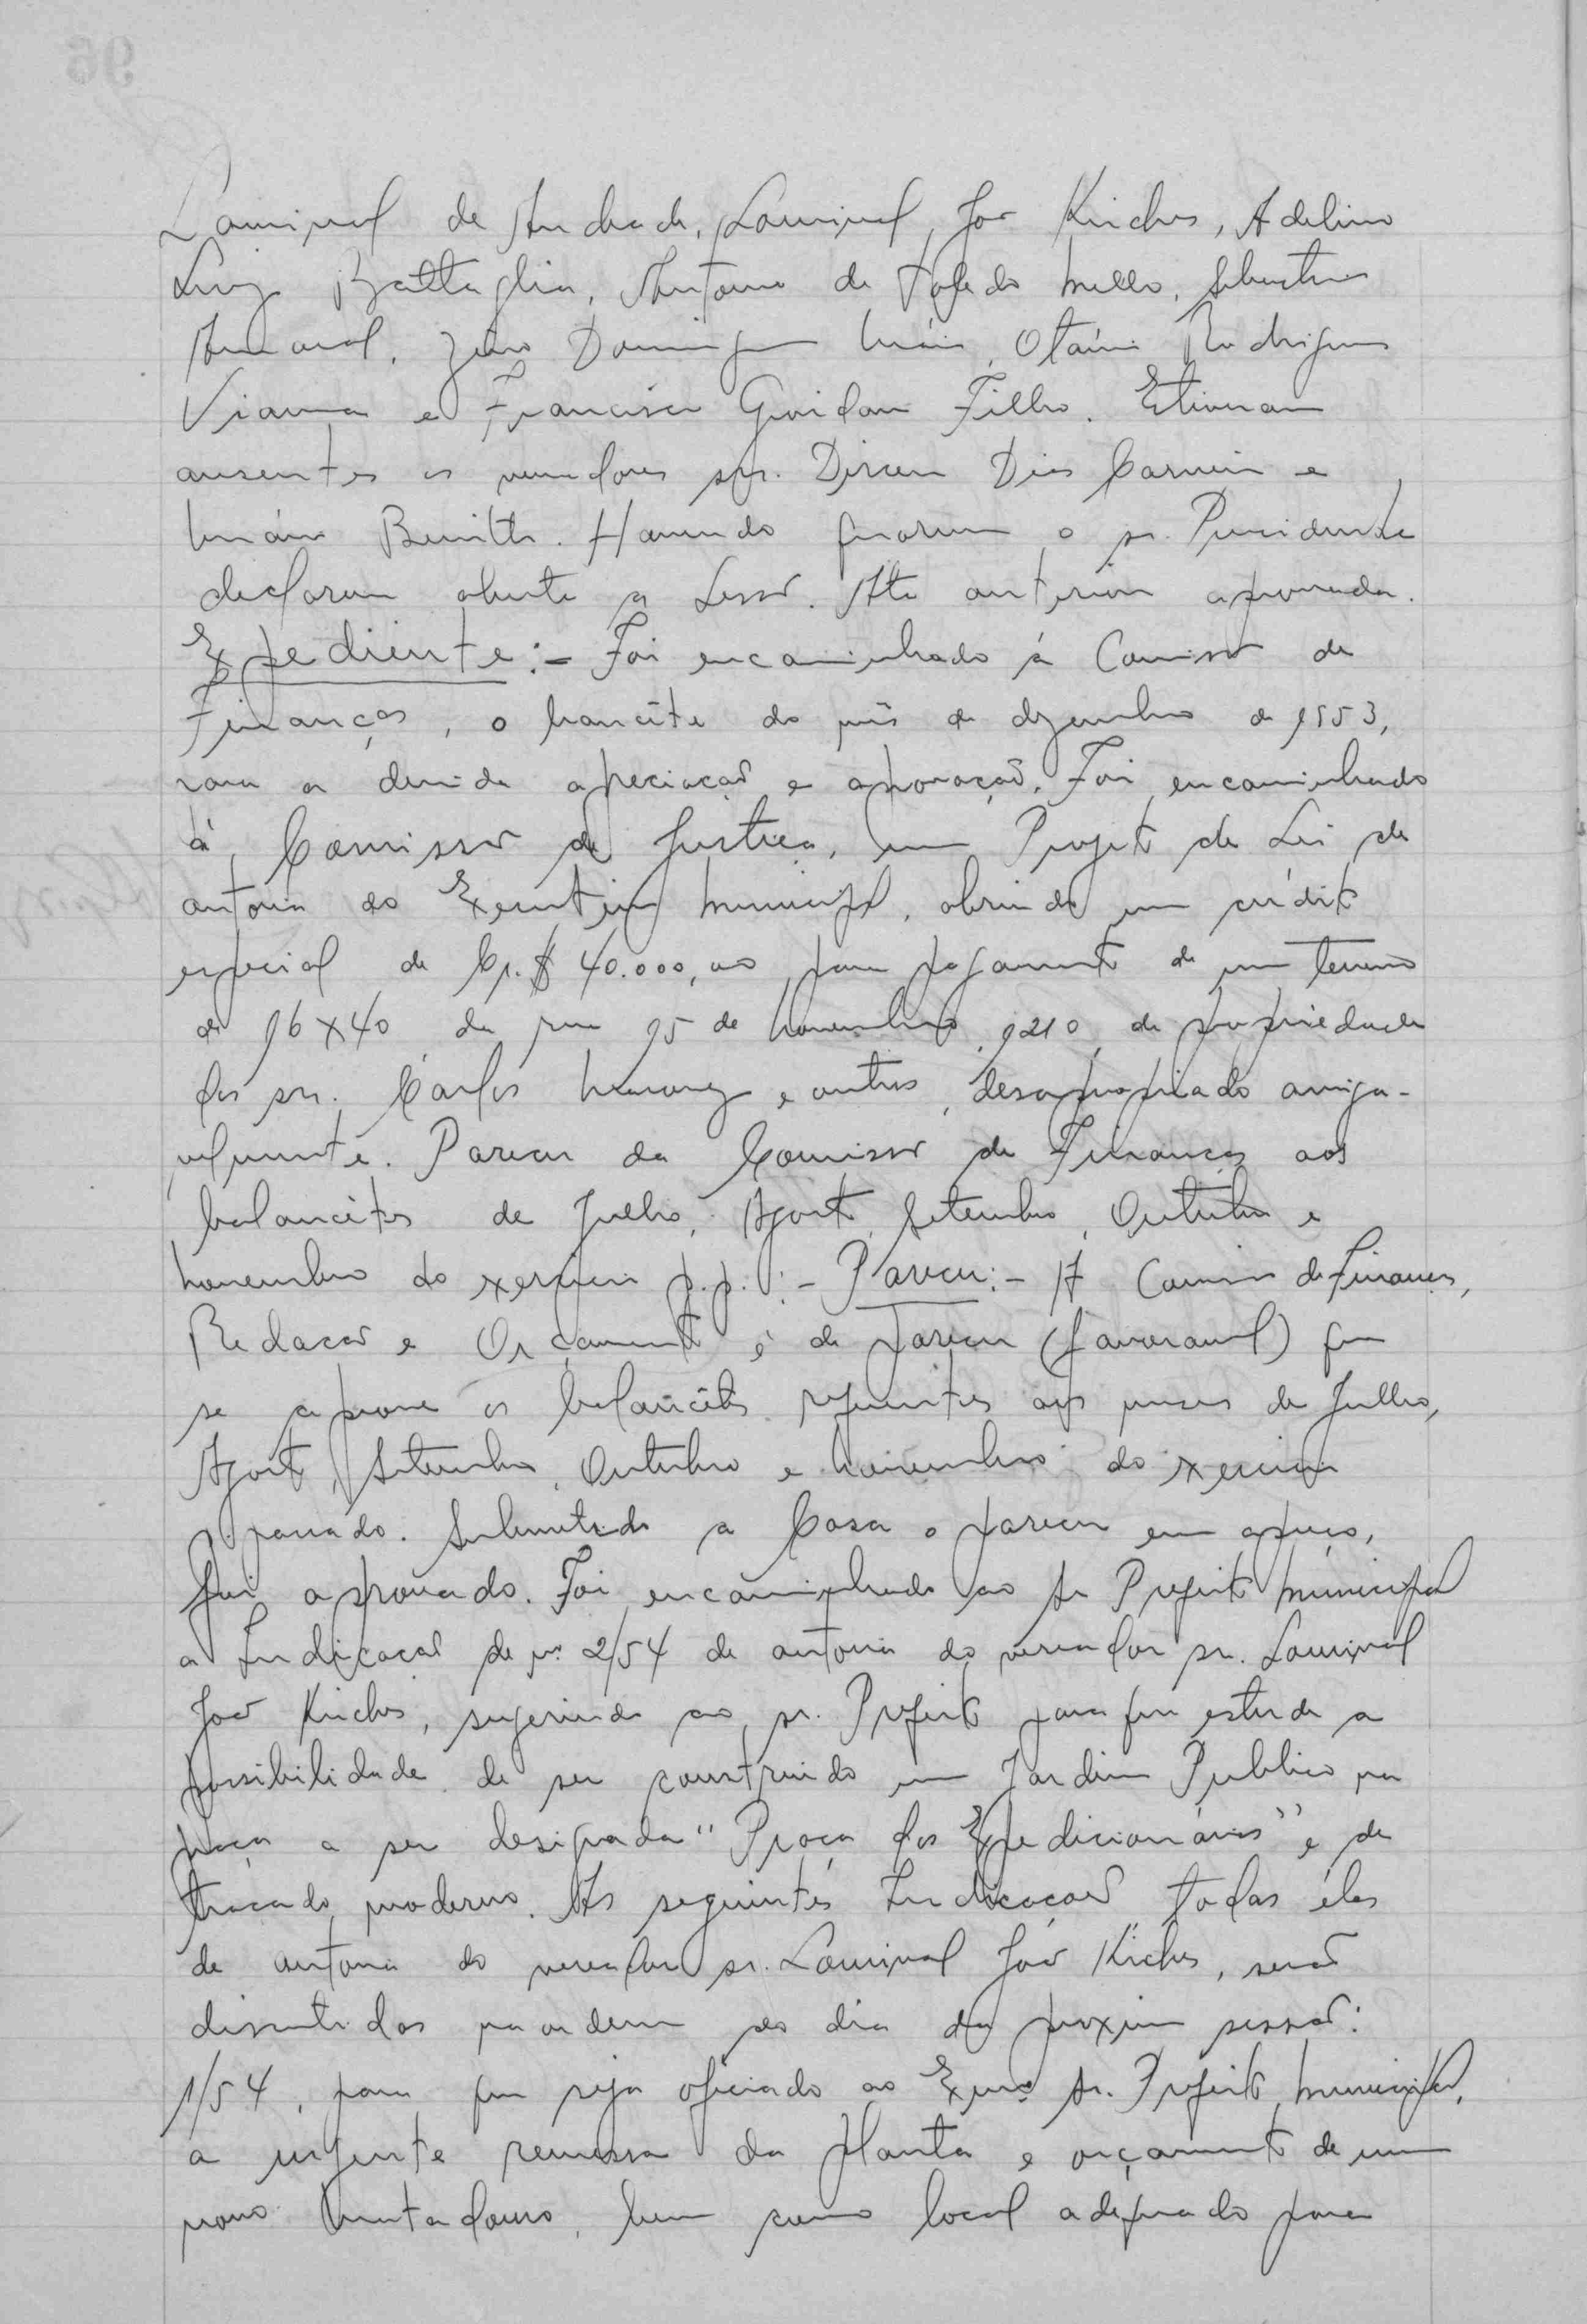 Lourival de Andrade, Lourival João Kirches, Adelino
Luiz Battaglia, Antonio de Toledo Mello, Sebastião
Amaral, Domingues Otávio Rodrigues
Vianna e Francisco Guidon Filho. Estiveram
ausentes os vereadores srs. Dirceu Dias Carneiro e
Mário Benitto. Havendo quorum o sr. Presidente
declarou aberta a sessão. Ata anterior aprovada.
Expediente:- Foi encaminhado à Comissão de
Finanças, o balancête do mês de dezembro de 1953,
para a devida apreciação e aprovação. Foi encaminhado
à Comissão de Justiça, um Projeto de Lei de
autoria do Executivo Municipal, abrindo um crédito
especial de Cr.$ 40.000,00 para pagamento de um terreno
de 16x40 da rua 15 de Novembro, 1210, de propriedade
dos srs. Carlos e outros, desapropriado amiga-
velmente. Parecer da Comissão de Finanças aos
balancêtes de Julho, Agosto, Setembro, Outubro e
Novembro do exercicio p.p.:- Parecer:- A Comissão de Finanças,
Redação e Orçamento é de parecer (favoravel) que
se aprove os balancêtes referentes aos meses de Julho,
Agosto, Setembro, Outubro e Novembro do exercicio
passado. Submetido a Casa o parecer em apreço,
foi aprovado. Foi encaminhada ao Sr Prefeito Municipal
a Indicação de nº 2/54 de autoria do vereador sr. Lourival
João Kirches, sugerindo ao sr. Prefeito para que estude a
possibilidade de ser construido um Jardim Publico na
praça a ser designada "Praça dos Expedicionários" e de
traçado moderno. As seguintes Indicações todas élas
de autoria do vereador sr. Lourival João Kirches, serão
discutidas na ordem do dia da proxima sessão:
1/54, para que seja oficiado ao Exmo Sr. Prefeito Municipal,
a urgente remessa da planta e orçamento de um
novo Matadouro, bem como local adequado para